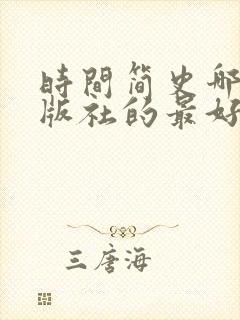 時間简史哪
版社的最好
三唐海